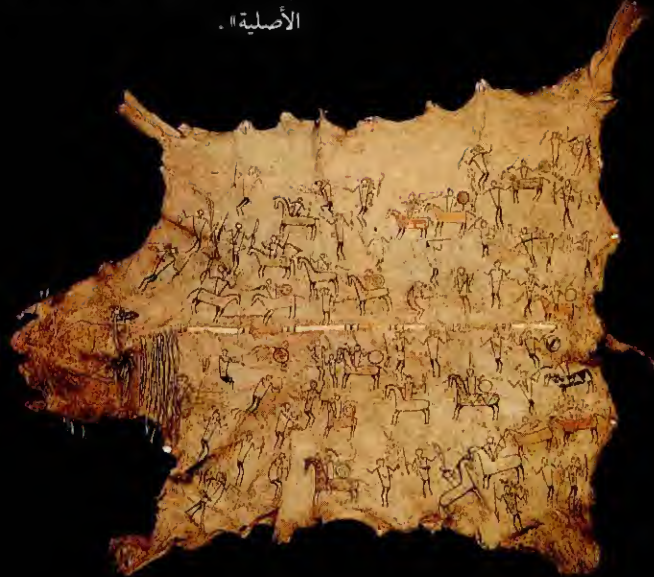 الأصلية» .